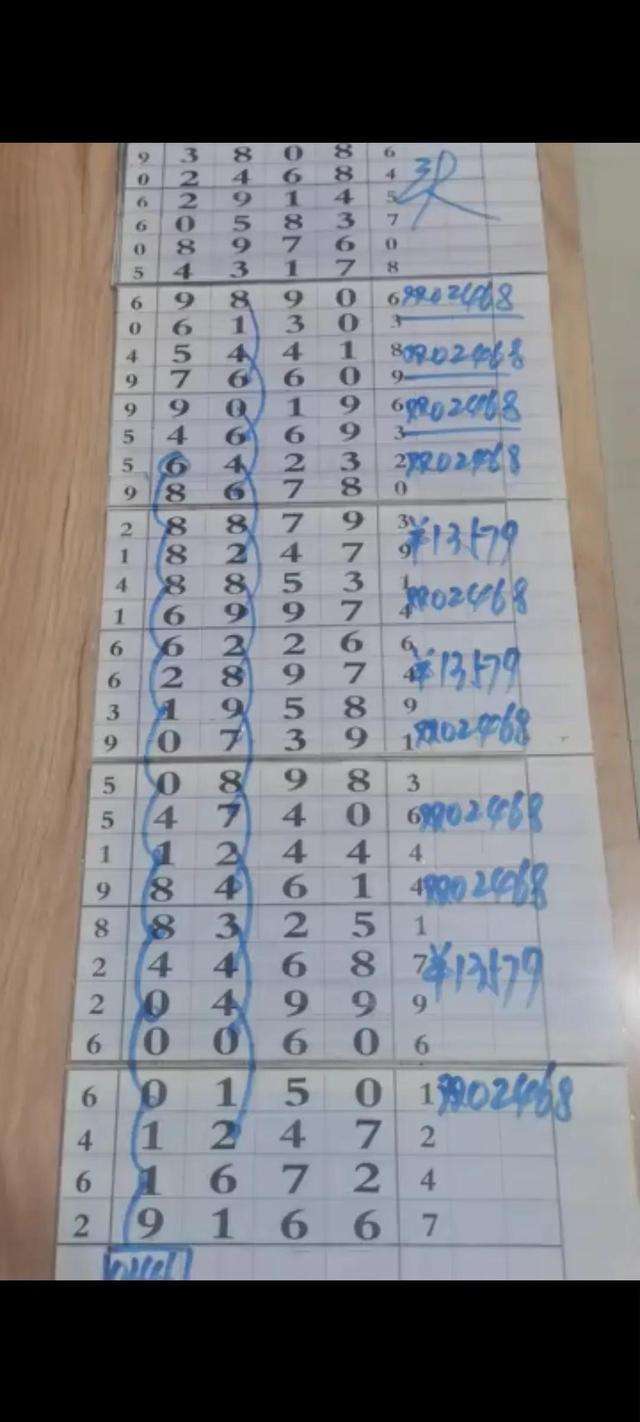 9 3 8 0 8 6
0 2 4 6 8 4
6 2 9 1 4 5
6 0 5 8 3 7
0 8 9 7 6 0
5 4 3 1 7 8
6 9 8 9 0 6 双02468
0 6 1 3 0 3
4 5 4 4 1 8 双02468
9 7 6 6 0 9
9 9 0 1 9 6 双02468
5 4 6 6 9 3
5 6 4 2 3 2 双02468
9 8 6 7 8 0
2 8 8 7 9 3 ¥13579
1 8 2 4 7 9
4 8 8 5 3 1 双02468
1 6 9 9 7 4
6 6 2 2 6 6
6 2 8 9 7 4 ¥13579
3 1 9 5 8 9
9 0 7 3 9 1 双02468
5 0 8 9 8 3
5 4 7 4 0 6 双02468
1 1 2 4 4 4
9 8 4 6 1 4 双02468
8 8 3 2 5 1
2 4 4 6 8 7 ¥13579
2 0 4 9 9 9
6 0 0 6 0 6
6 0 1 5 0 1 双02468
4 1 2 4 7 2
6 1 6 7 2 4
2 9 1 6 6 7